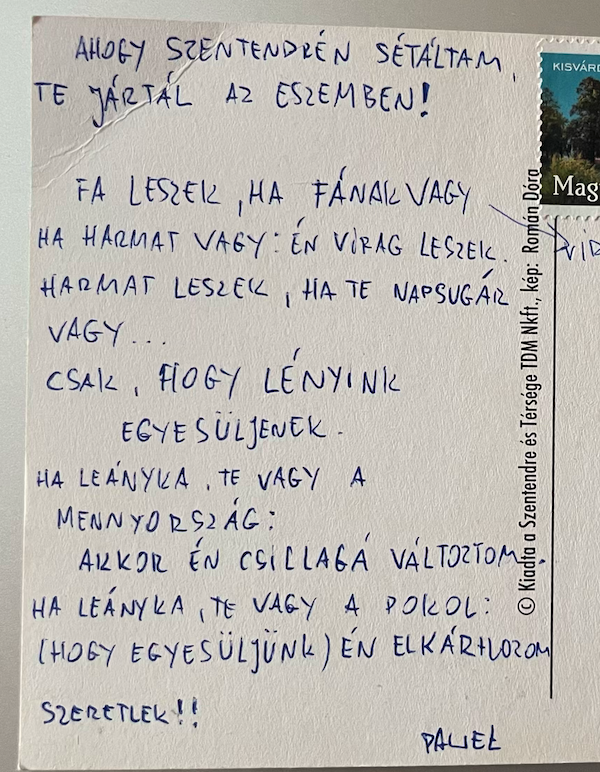 AHOGY SZENTENDRÉN SÉTÁLTAM,
TE JÁRTÁL AZ ESZEMBEN!
FA LESZEK, HA FÁNAK VAGY
HA HARMAT VAGY: ÉN VIRAG LESZEK.
HARMAT LESZEK, HA TE NAPSUGÁR
VAGY...
CSAK, HOGY LÉNYINK
EGYESÜLJENEK.
HA LEÁNYKA, TE VAGY A
MENNYORSZÁG:
AKKOR ÉN CSILLAGÁ VÁLTOZTOM.
HA LEÁNYKA, TE VAGY A POKOL:
(HOGY EGYESÜLJÜNK) ÉN ELKÁRHOZOM
SZERETLEK!!
PAWEŁ
© Kiadta a Szentendre és Térsége TDM Nkft., kép: Román Dóra
KISVÁRD
Mag